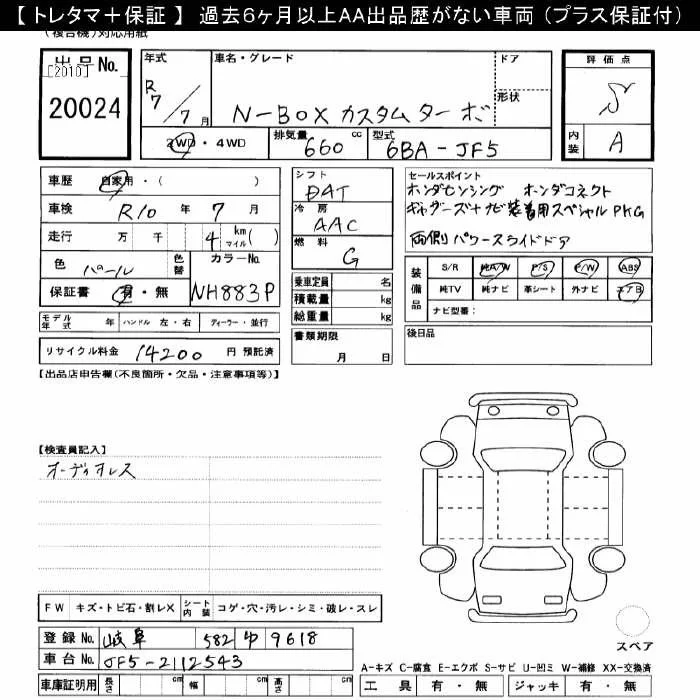 【トレタマ＋保証】 過去6ヶ月以上AA出品歴がない車両（プラス保証付）
(複合機)対応用紙
出品No.
[2010]
20024
年式 R7/7月
車名・グレード
N-BOX カスタム ターボ
ドア
形状
評価点
S
内装 A
2WD・4WD
排気量 660 cc
型式 6BA-JF5
車歴 自家用・( )
車検 R10 年 7 月
走行 万 千 4 km マイル( )
色 パール 色替 カラーNo. NH883P
保証書 有・無
モデル年式 年 ハンドル 左・右 ディーラー・並行
リサイクル料金 14200 円 預託済
シフト DAT
冷房 AAC
燃料 G
乗車定員 名
積載量 kg
総重量 kg
書類期限
月 日
セールスポイント
ホンダセンシング ホンダコネクト
ギャザーズ+ナビ装着用スペシャルPKG
両側パワースライドドア
装備品
S/R 純A/W P/S P/W ABS
純TV 純ナビ 革シート 外ナビ エアB
ナビ型番：
後日品
【出品店申告欄(不良箇所・欠品・注意事項等)】
【検査員記入】
オーディオレス
FW キズ・トビ石・割レX シート内装 コゲ・穴・汚レ・シミ・破レ・スレ
登録No. 岐阜 582 ゆ 9618
車台No. JF5-2112543
車庫証明用 長さ cm 幅 cm 高さ cm
スペア
A-キズ C-腐食 E-エクボ S-サビ U-凹ミ W-補修 XX-交換済
工具 有・無 ジャッキ 有・無